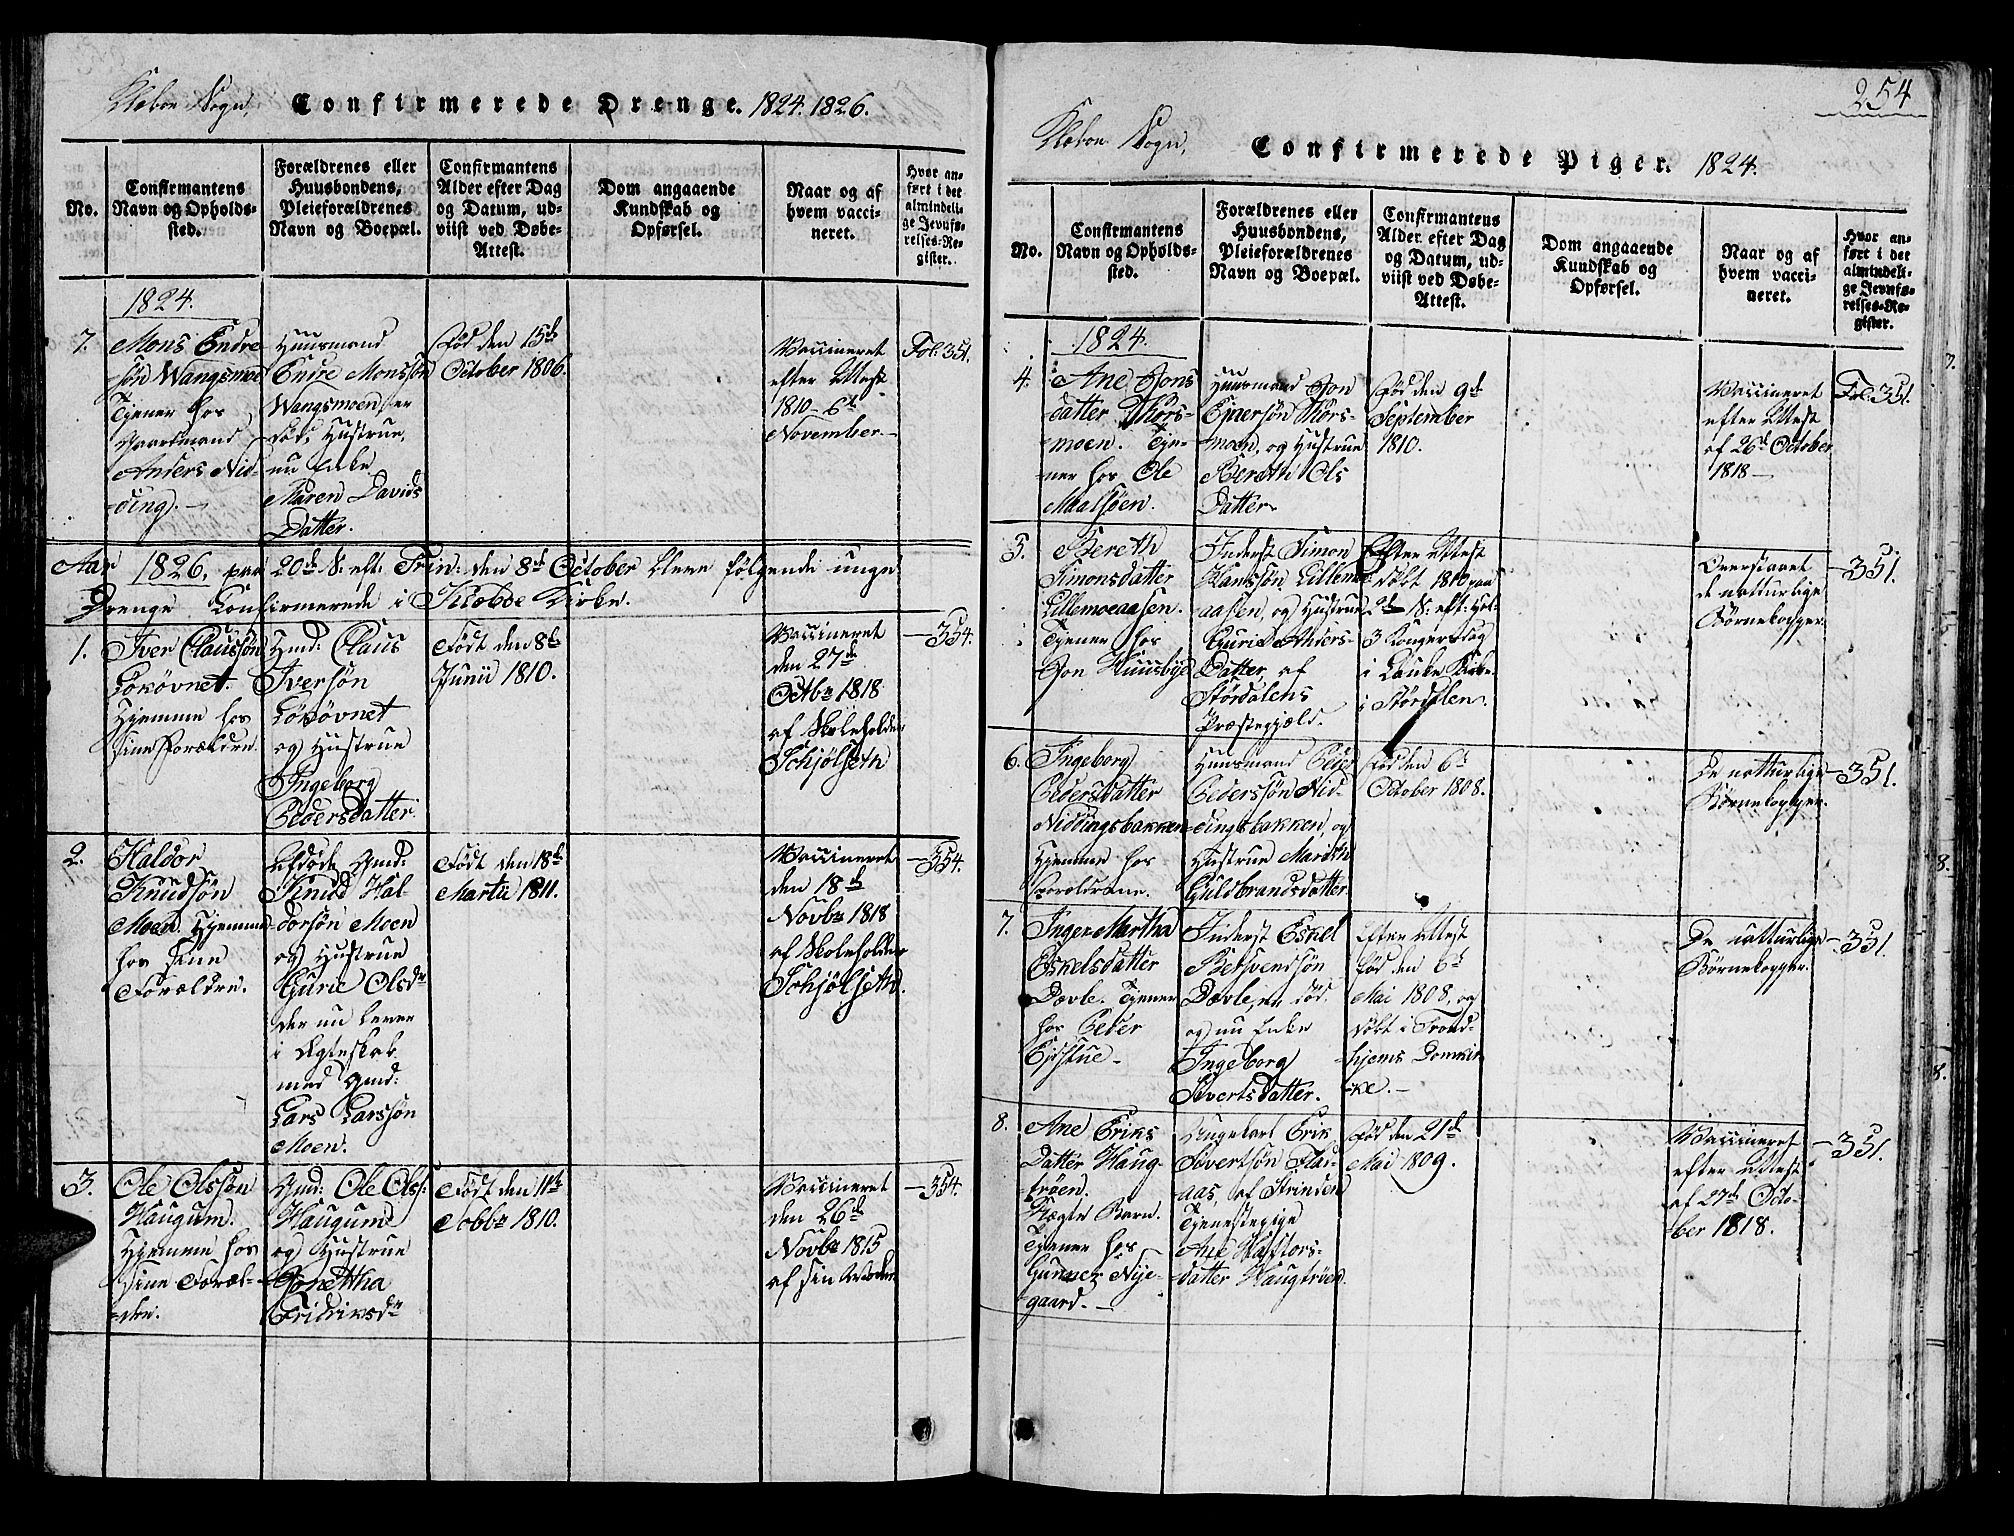 Klæboe Sogn, Confirmerede Drenge. 1824. 1826.
No.
Confirmantens
Navn og Opholds-
sted.
Forældrenes eller
Huusbondens,
Pleieforældrenes
Navn og Boepæl.
Confirmantens
Alder efter Dag
og Datum, ud-
viist ved Døbe-
Attest.
Dom angaaende
Kundskab og
Opførsel.
Naar og af
hvem vacci-
neret.
Hvor an-
ført i det
almindeli-
ge Jevnfø-
relses-Re-
gister.
1824.
7.
Mons Endre
søn Wangsmoe
Tjener hos
Gaardmand
Anders Nid-
ding.
Huusmand
Endre Monssøn
Wangsmoen, er
død, Hustrue,
nu Enke
Maren Davids
Datter.
Fød den 15de
October 1806.
Vaccineret
efter Attest
1810 6te
November.
Fol. 351.
Aar 1826, paa 20de S: eft: Trin: den 8de October bleve følgende unge
Drenge Confirmerede i Klæboe Kirke.
1.
Iver Claussøn
Løxøvnet.
Hjemme hos
sine Forældre.
Hmd: Claus
Iversøn
Løxøvnet
og Hustrue
Ingeborg
Pedersdatter.
Født den 8de
Junii 1810.
Vaccineret
den 27de
Octbr 1818
af Skoleholder
Schjølseth
354.
2.
Haldor
Knudsøn
Moen. Hjemme
hos sine
Forældre.
Afdøde Gmd:
Knud Hal-
dorsøn Moen
og Hustrue
Gurie Olsdr
der nu lever
i Ægteskab
med Gmd:
Lars Larssøn
Moen.
Født den 18de
Martii 1811.
Vaccineret
den 18de
Novbr 1818
af Skoleholder
Schjølseth.
354.
3.
Ole Olssøn
Haugum.
Hjemme hos
sine Foræl-
dre.
Gmd: Ole Olss:
Haugum
og Hustrue
Gonettha
Fridriksdr
Født den 11te
Febbr 1810.
Vaccineret
den 26de
Novbr 1815
af sin Moder
354.
254
Klæboe Sogn, Confirmerede Piger. 1824.
No.
Confirmantens
Navn og Opholds-
sted.
Forældrenes eller
Huusbondens,
Pleieforældrenes
Navn og Boepæl.
Confirmantens
Alder efter Dag
og Datum, ud-
viist ved Døbe-
Attest.
Dom angaaende
Kundskab og
Opførsel.
Naar og af
hvem vacci-
neret.
Hvor an-
ført i det
almindeli-
ge Jevnfø-
relses-Re-
gister.
1824.
4.
Ane Jons
datter Thors-
moen. Tje-
ner hos Ole
Maalsøen.
Huusmand Jon
Ejnersøn Thors-
moen, og Hustrue
Bereth Ols
Datter
Fød den 9de
September
1810.
Vaccineret
efter Attest
af 26de October
1818
Fol. 351.
5.
Bereth
Simonsdatter
Lillemoeaasen.
Tjener hos
Jon Huusbye
Inderst Simon
Hanssøn Lillemoe-
aasen, og Hustrue
Gurie Anders-
Datter, af
Størdalens
Præstegjæld.
Efter Attest
døbt 1810 paa
2den S: eft: Hel-
3 Kongersdag
i Lanke Kirke
i Størdalen.
Overstaaet
de natturlige
Børnekopper.
351.
6.
Ingeborg
Pedersdatter
Niddingsbakken
Hjemme hos
Forældrene.
Huusmand Peder
Pederssøn Nid-
dingsbakken, og
Hustrue Marith
Guldbrandsdatter
Fød den 6te
October 1808.
De natturlige
Børnekopper.
351.
7.
Inger Martha
Eskelsdatter
Dovle. Tjener
hos Peder
Ejdstue
Inderst Eskel
Betsvendsøn
Dovle, er død.
og nu Enke
Ingeborg
Sivertsdatter.
Efter Attest
fød den 6te
Mai 1808, og
døbt i Trond-
hjems Domkir
ke.
De natturlige
Børnekopper.
351.
8.
Ane Eriks
Datter Haug-
trøen.
Uægte Barn.
Tjener hos
Gunner Nye-
gaard.
Ungekarl Erik
Sivertsøn Flat-
aas, af Strinden
Tjenestepige
Ane Hafttors-
datter Haugtrøen.
Fød den 21de
Mai 1809.
Vaccineret
efter Attest
af 27de Octo-
ber 1818.
351.